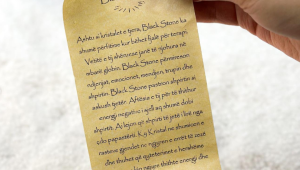 Ashtu si kristalet e tjera, Black Stone ka
shumë përfitime kur bëhet fjalë për terapi.
Vetitë e tij shëruese janë të njohura në
mbarë globin. Black Stone përmirëson
ndjenjat, emocionet, mendjen, trupin dhe
shpirtin. Black Stone pastron shpirtin si
askush tjetër. Aftësia e tij për të thithur
energji negative i sjell asaj shumë dribi
shpirtin. Ai lejon që shpirti të jetë i lirë nga
çdo papastërti. Ky Kristal në shumicën e
rasteve gjendet në ngjyrën e errët të zezë
dhe thuhet që qytetërimet e hershme
thithte energji dhe